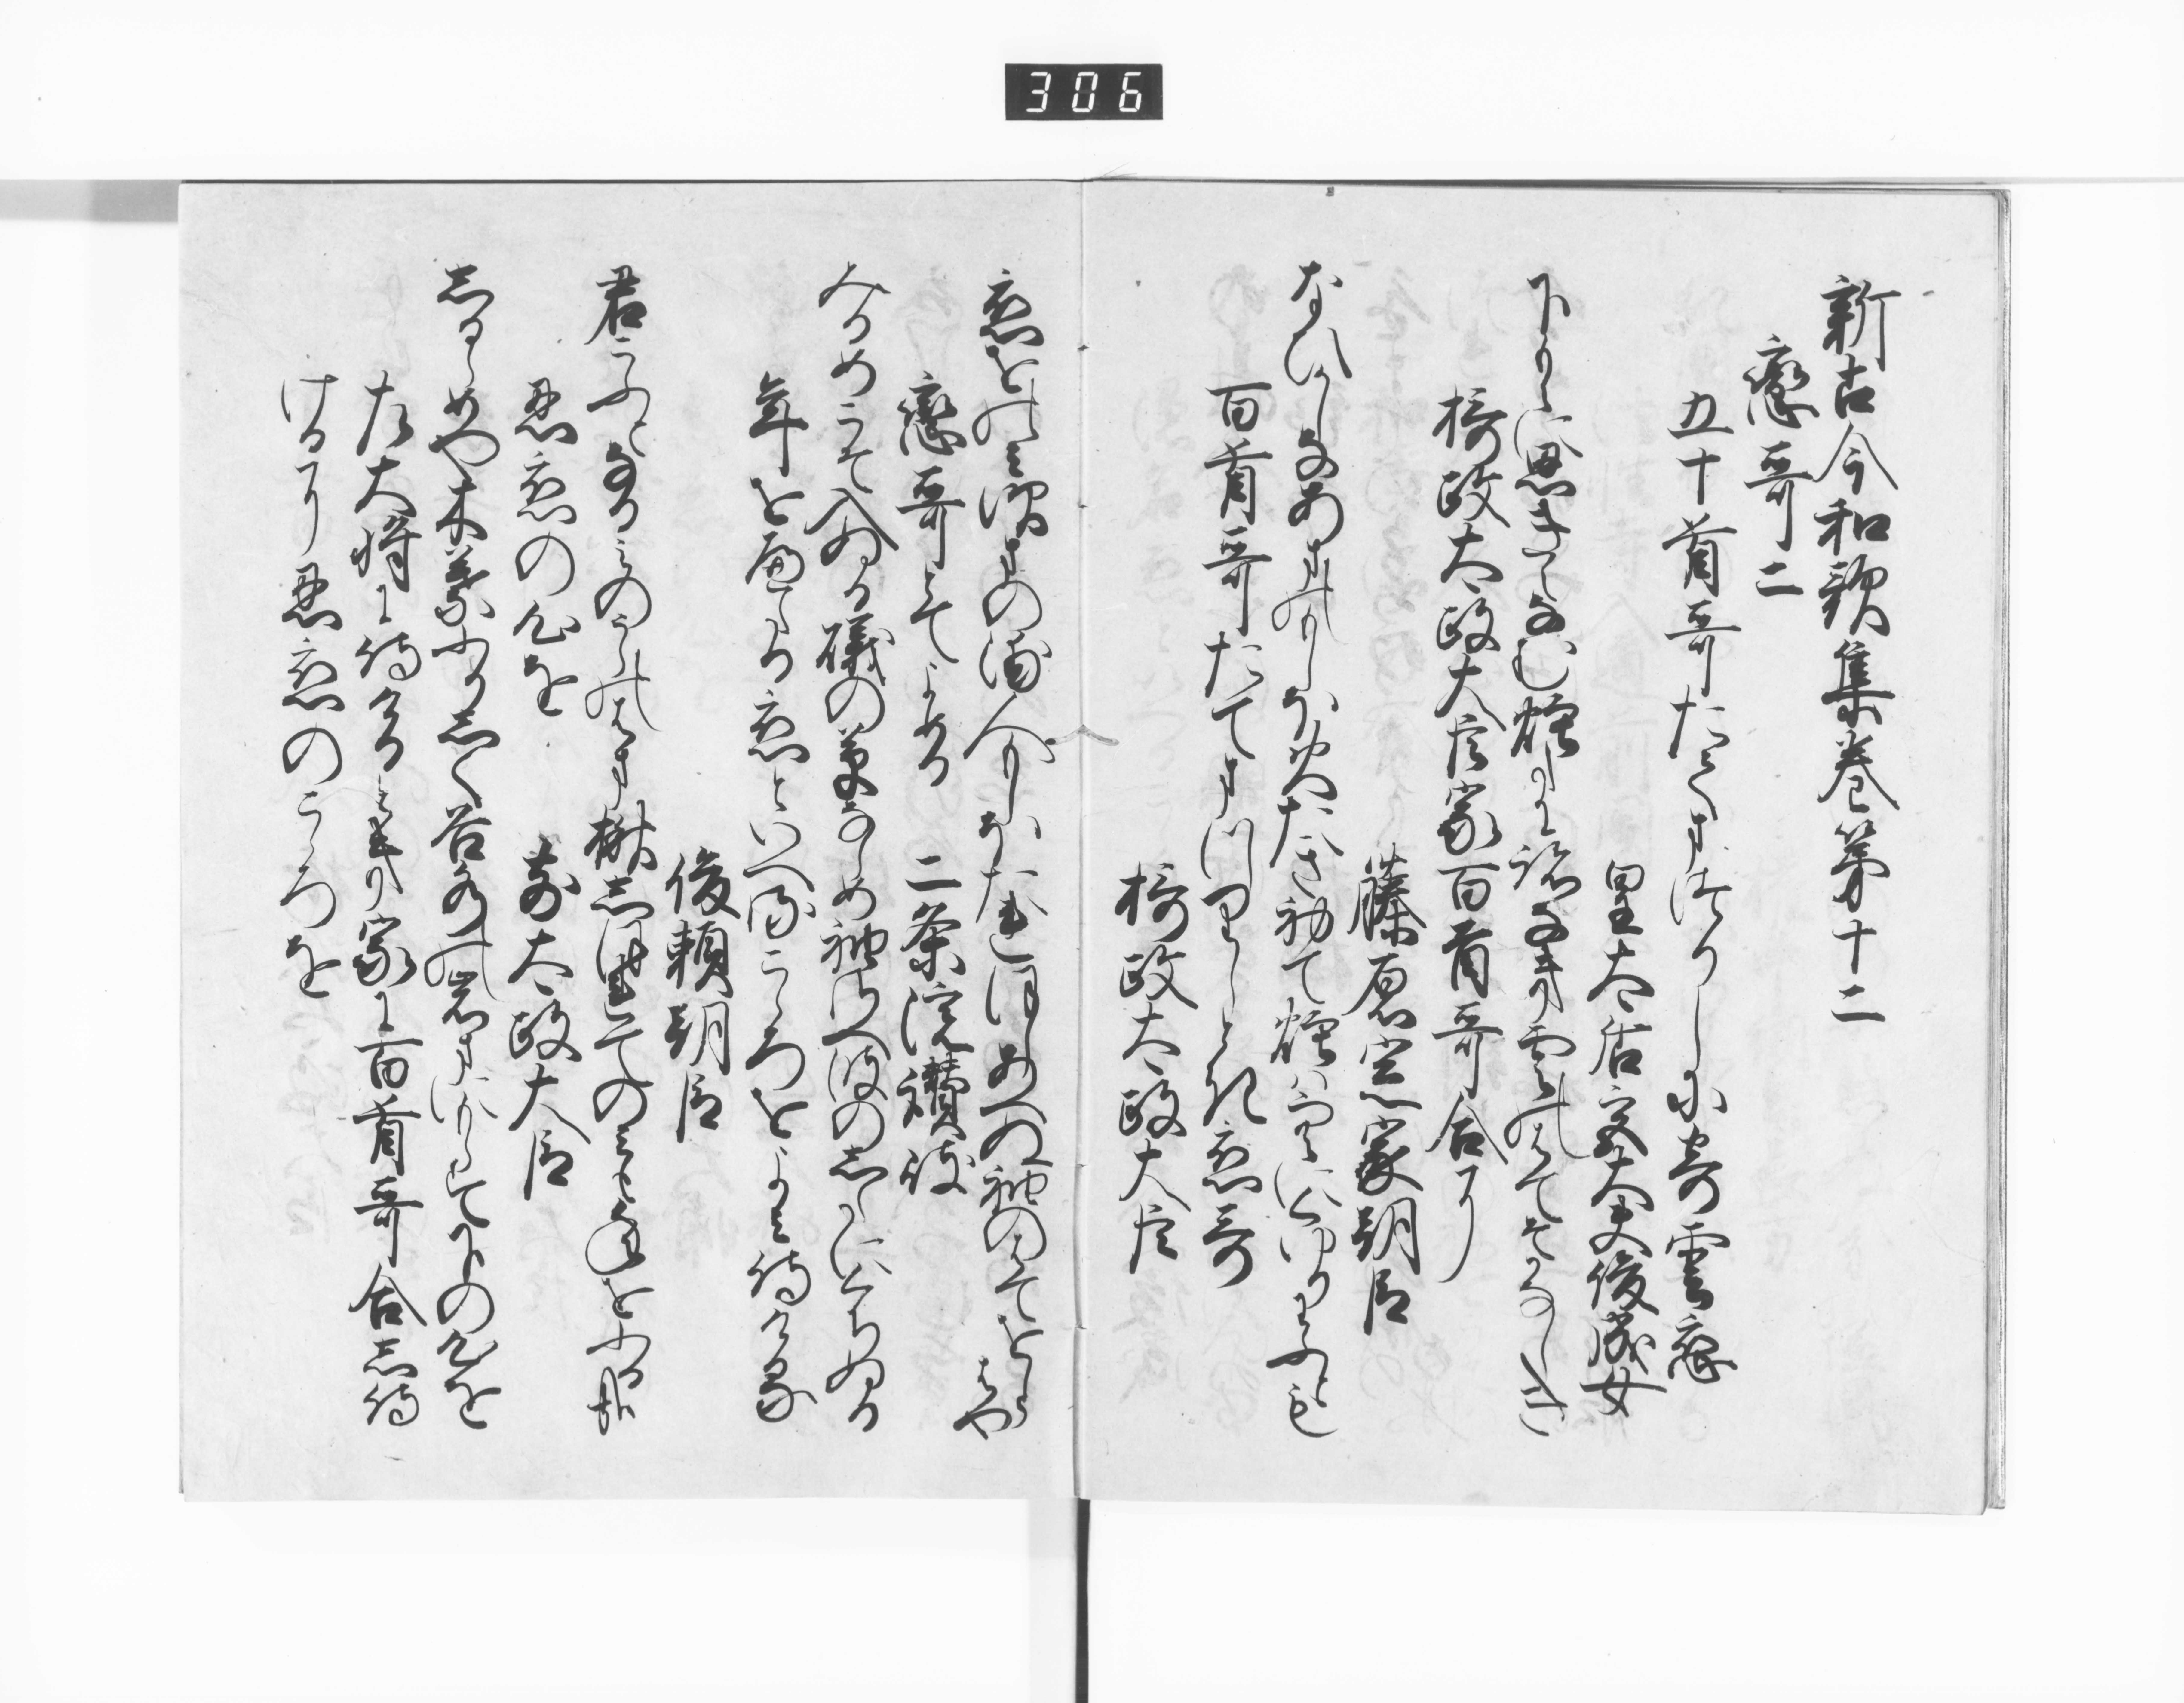 306
新古今和歌集巻第十二
戀哥二
五十首哥たてまつりしに寄雲戀
皇太后宮大夫俊成女
下もえに思きえなむ煙たに跡なき雲のはてそかなしき
摂政太政大臣家百首哥合に
藤原定家朝臣
なひかしなあまのもしほ火たき初て煙は空にくゆりわふとも
百首哥たてまつりしとき恋哥
摂政太政大臣
恋をのみすまの浦人もしほたれほしあへぬ袖のはてをしらはや
戀哥とてよめる
二条院讃岐
みるめこそ入ぬる礒の草ならめ袖さへ波のしたにくちぬる
年を歴たる恋といへるこゝろをよみ侍ける
俊頼朝臣
君こふとなるみのうらの濱楸しほれてのみも年をふる哉
忍恋の心を
前太政大臣
しるらめや木葉ふりしく谷水の岩まにもらす下の心を
左大将に侍ける時家に百首哥合し侍
けるに忍恋のこゝろを